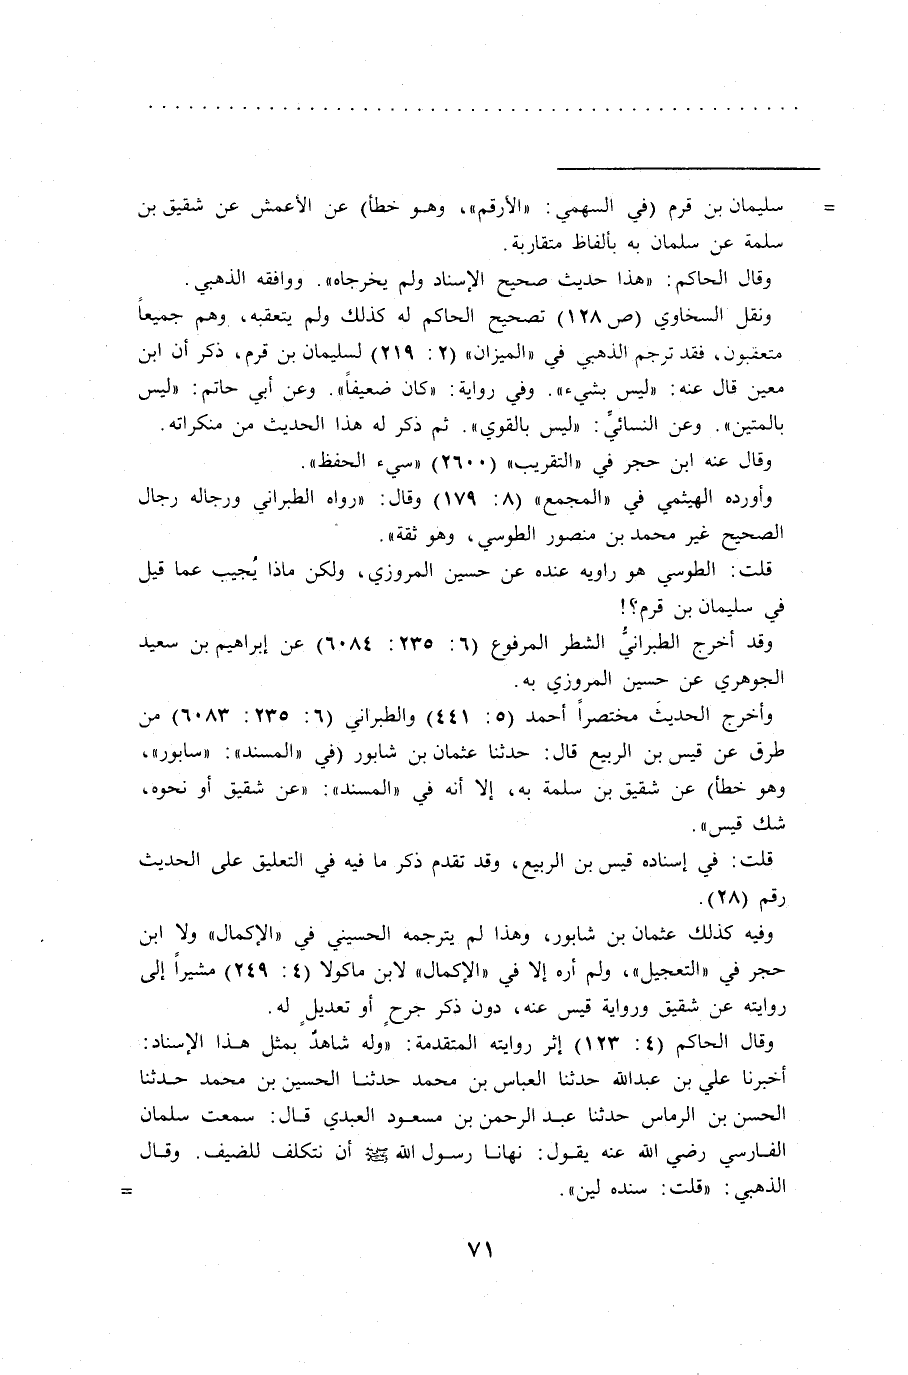 = سليمان بن قرم (في السهمي: «الأرقم»، وهو خطأ) عن الأعمش عن شقيق بن
سلمة عن سلمان به بألفاظ متقاربة.
وقال الحاكم: «هذا حديث صحيح الإسناد ولم يخرجاه». ووافقه الذهبي.
ونقل السخاوي (ص ١٢٨) تصحيح الحاكم له كذلك ولم يتعقبه، وهم جميعاً
متعقبون، فقد ترجم الذهبي في «الميزان» (٢: ٢١٩) لسليمان بن قرم، ذكر أن ابن
معين قال عنه: «ليس بشيء». وفي رواية: «كان ضعيفاً». وعن أبي حاتم: «ليس
بالمتين». وعن النسائيِّ: «ليس بالقوي». ثم ذكر له هذا الحديث من منكراته.
وقال عنه ابن حجر في «التقريب» (٢٦٠٠) «سيء الحفظ».
وأورده الهيثمي في «المجمع» (٨: ١٧٩) وقال: «رواه الطبراني ورجاله رجال
الصحيح غير محمد بن منصور الطوسي، وهو ثقة».
قلت: الطوسي هو راويه عنده عن حسين المروزي، ولكن ماذا يُجيب عما قيل
في سليمان بن قرم؟!
وقد أخرج الطبرانيُّ الشطر المرفوع (٦: ٢٣٥: ٦٠٨٤) عن إبراهيم بن سعيد
الجوهري عن حسين المروزي به.
وأخرج الحديث مختصراً أحمد (٥: ٤٤١) والطبراني (٦: ٢٣٥: ٦٠٨٣) من
طرق عن قيس بن الربيع قال: حدثنا عثمان بن شابور (في «المسند»: «سابور»،
وهو خطأ) عن شقيق بن سلمة به، إلا أنه في «المسند»: «عن شقيق أو نحوه،
شك قيس».
قلت: في إسناده قيس بن الربيع، وقد تقدم ذكر ما فيه في التعليق على الحديث
رقم (٢٨).
وفيه كذلك عثمان بن شابور، وهذا لم يترجمه الحسيني في «الإكمال» ولا ابن
حجر في «التعجيل»، ولم أره إلا في «الإكمال» لابن ماكولا (٤: ٢٤٩) مشيراً إلى
روايته عن شقيق ورواية قيس عنه، دون ذكر جرحٍ أو تعديلٍ له.
وقال الحاكم (٤: ١٢٣) إثر روايته المتقدمة: «وله شاهدٌ بمثل هذا الإسناد:
أخبرنا علي بن عبدالله حدثنا العباس بن محمد حدثنا الحسين بن محمد حدثنا
الحسن بن الرماس حدثنا عبد الرحمن بن مسعود العبدي قال: سمعت سلمان
الفارسي رضي الله عنه يقول: نهانا رسول الله ﷺ أن نتكلف للضيف. وقال
الذهبي: «قلت: سنده لين». =
٧١